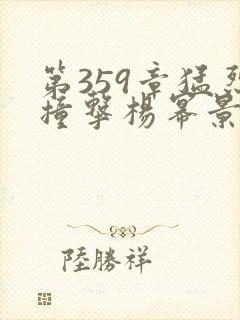 第359章猛烈
撞擊楊冪景
陸勝祥